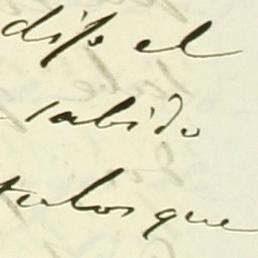 dijo el
sabido
tulos que